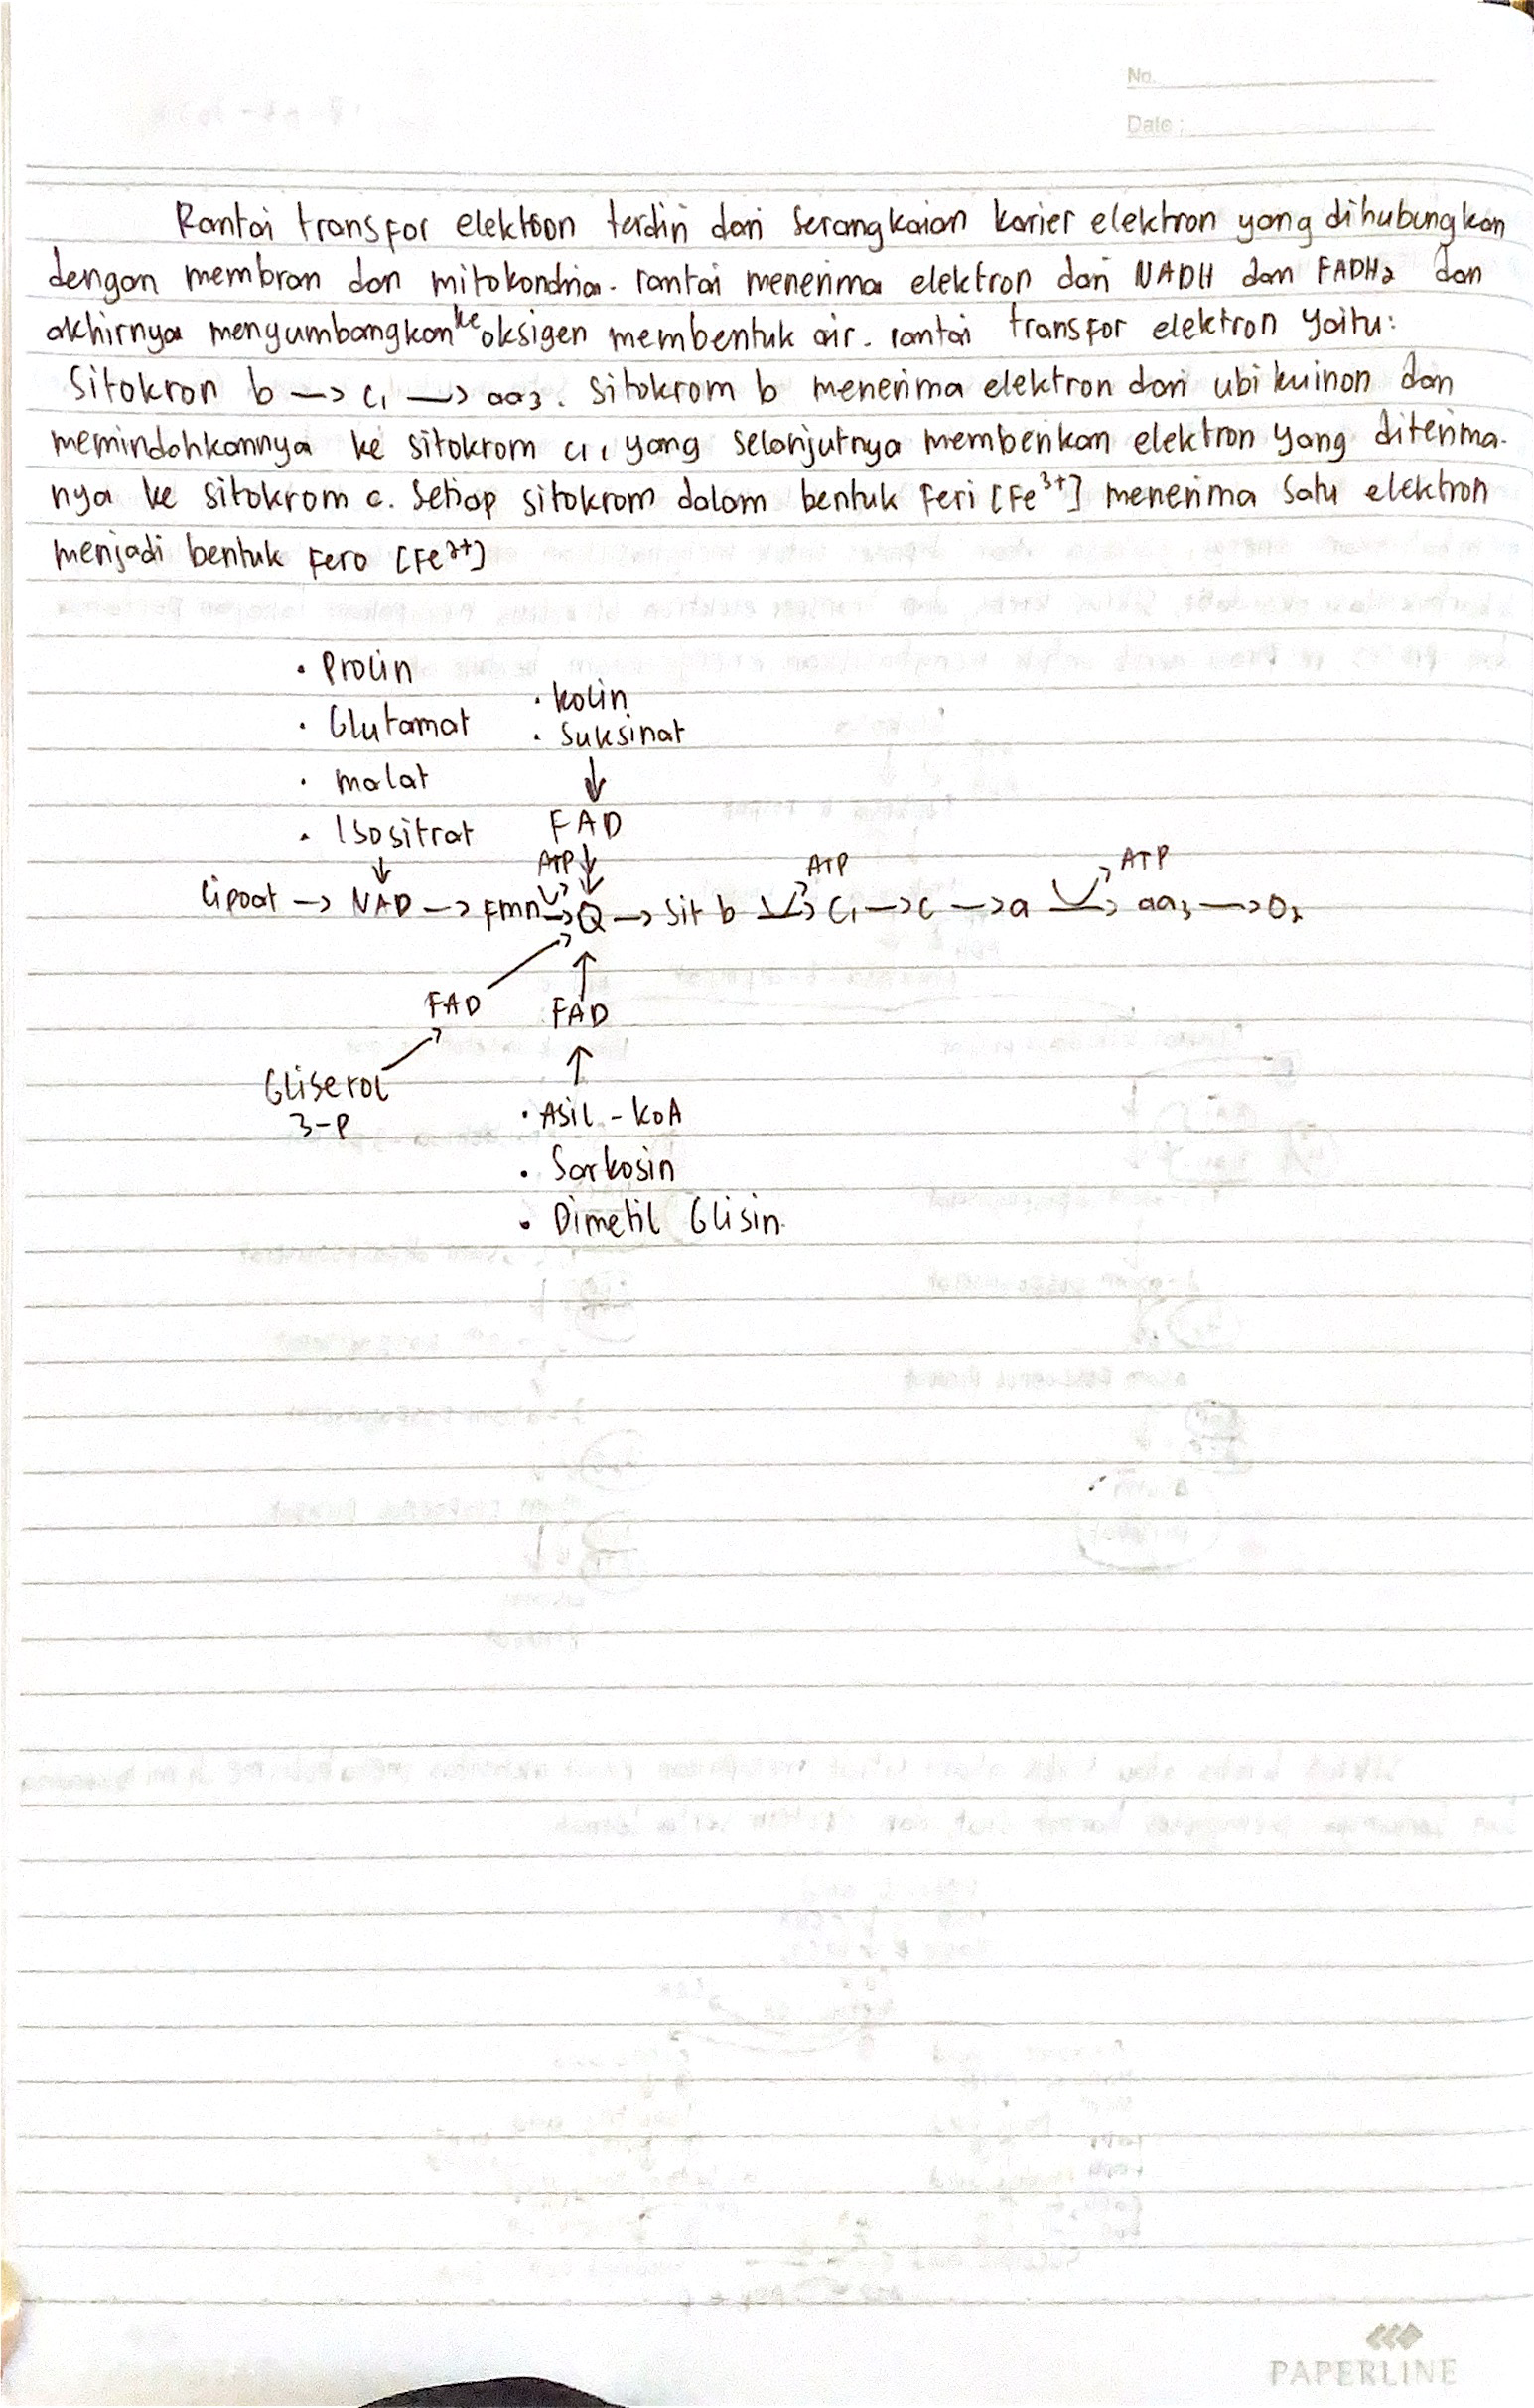 No.
Date :
Rantai transfor elektron terdiri dari serangkaian karier elektron yang dihubungkan
dengan membran dan mitokondria. rantai menerima elektron dari NADH dan FADH₂ dan
akhirnya mengumbangkan ke oksigen membentuk air. rantai transfor elektron yaitu:
Sitokron b → c₁ → aa₃. Sitokrom b menerima elektron dari ubi kuinon dan
memindahkannya ke sitokrom c₁, yang selanjutnya memberikan elektron yang diterima-
nya ke sitokrom c. Setiap sitokrom dalam bentuk Feri [Fe³⁺] menerima satu elektron
menjadi bentuk Fero [Fe²⁺]
• Prolin
• Kolin
• Glutamat
• Suksinat
• malat
• Isositrat
FAD
ATP ATP ATP
Lipoat → NAD → FMN → Q → Sit b → C₁ → c → a → aa₃ → O₂
FAD FAD
Gliserol
3-P
• Asil - KoA
• Sarkosin
• Dimetil Glisin.
PAPERLINE